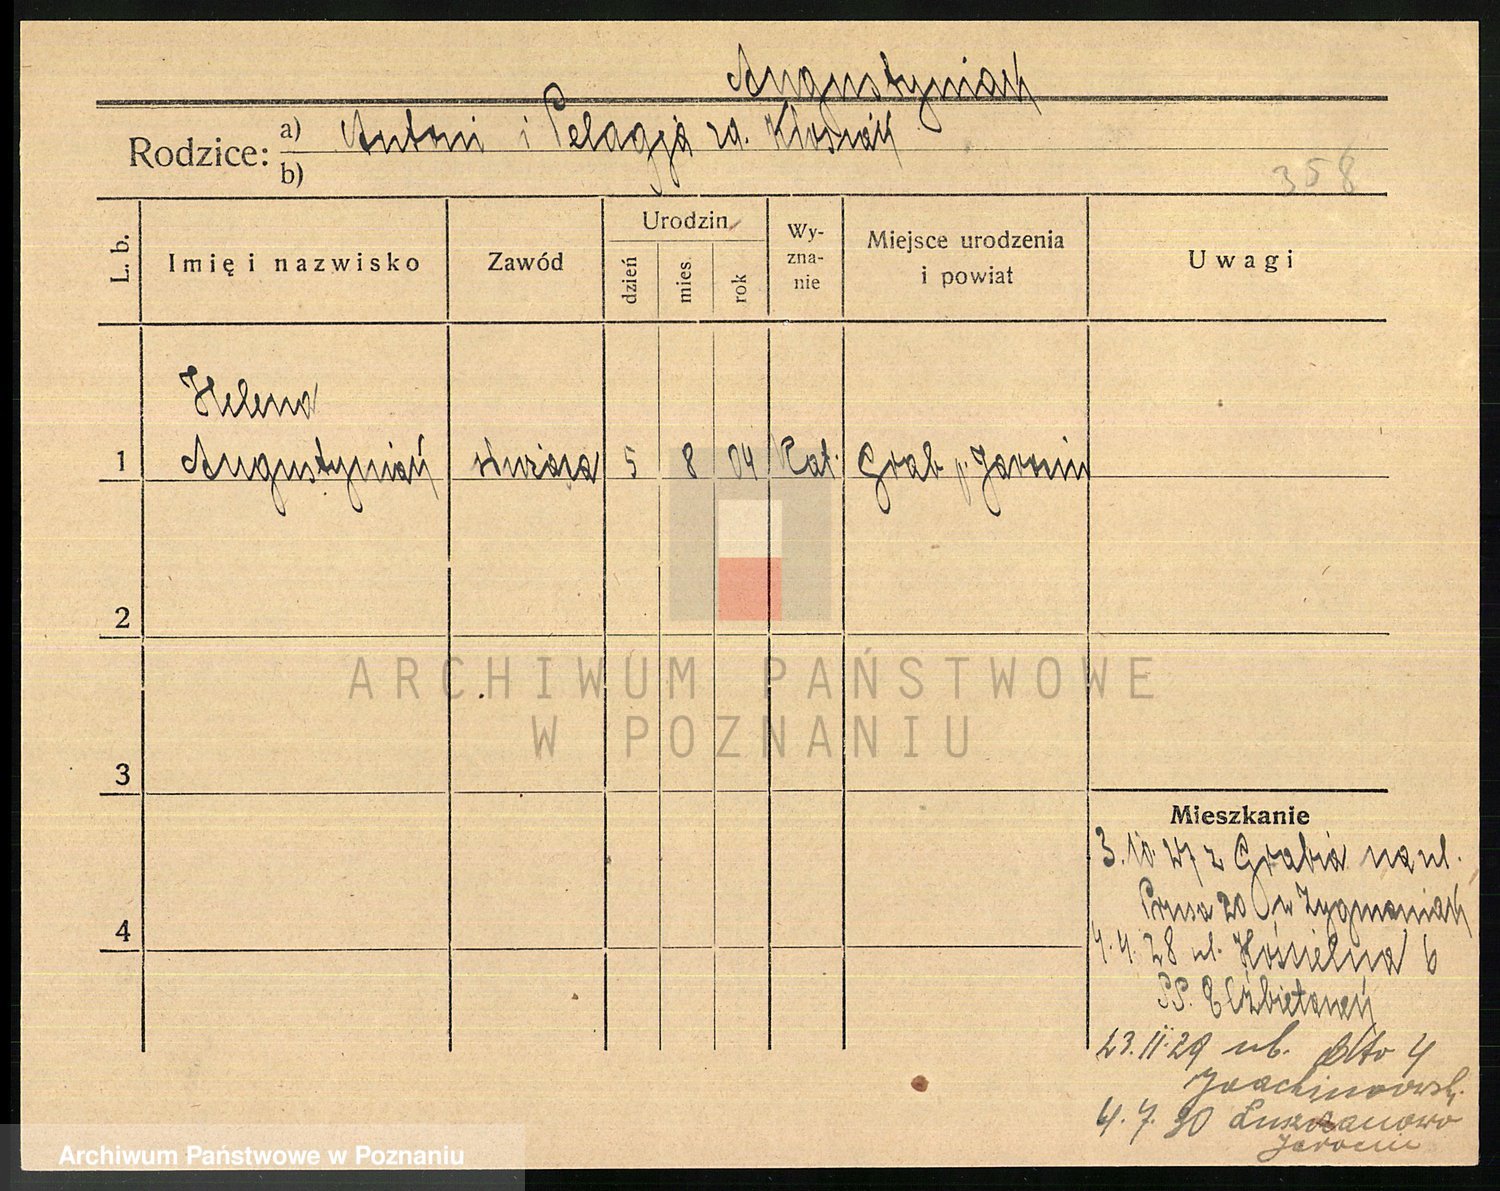 Augustyniak
Rodzice: a) Antoni i Pelagja zd. Kłosiak
b)
358
L. b.
Imię i nazwisko
Zawód
Urodzin
dzień
mies.
rok
Wy-
zna-
nie
Miejsce urodzenia
i powiat
Uwagi
Helena
1 Augustyniak służąca 5 8 04 Kat. Grab p. Jarocin
2
3
4
ARCHIWUM PAŃSTWOWE
W POZNANIU
Mieszkanie
3.10 27 z Grabia na ul.
Prusa 20 Zygmaniak
4.4.28 ul. Kościelna 6
PP. Elżbietanek
23.II.29 ul. 4
Joachimowski
4.7.30 Łuszczanowo
Jarocin
Archiwum Państwowe w Poznaniu